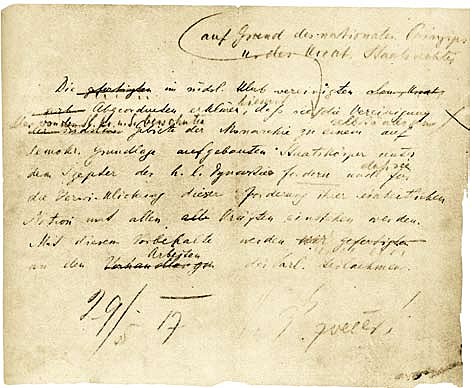 auf Grund des nationalen Prinzips
u. des kroat. Staatsrechtes
Die gefertigten im südsl. Klub vereinigten
Abgeordneten erklären, daß sie die Vereinigung
von den S. K. u. S. bewohnten
Gebiete der Monarchie zu einem auf
demokr. Grundlage aufgebauten Staatskörper unter
dem Szepter der h. l. Dynastie fordern und für
die Verwirklichung dieser Forderung ihrer einheitlichen
Nation mit allen Kräften einstehen werden.
Mit diesem Vorbehalte werden gefertigten
Arbeiten
an den Verhandlungen des Parl. teilnehmen.
29/V 17